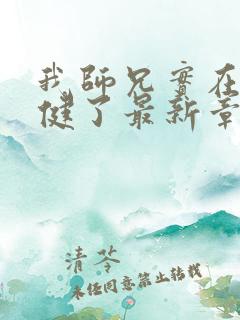 我師兄實在
健了最新章
清苓
未经同意禁止转载